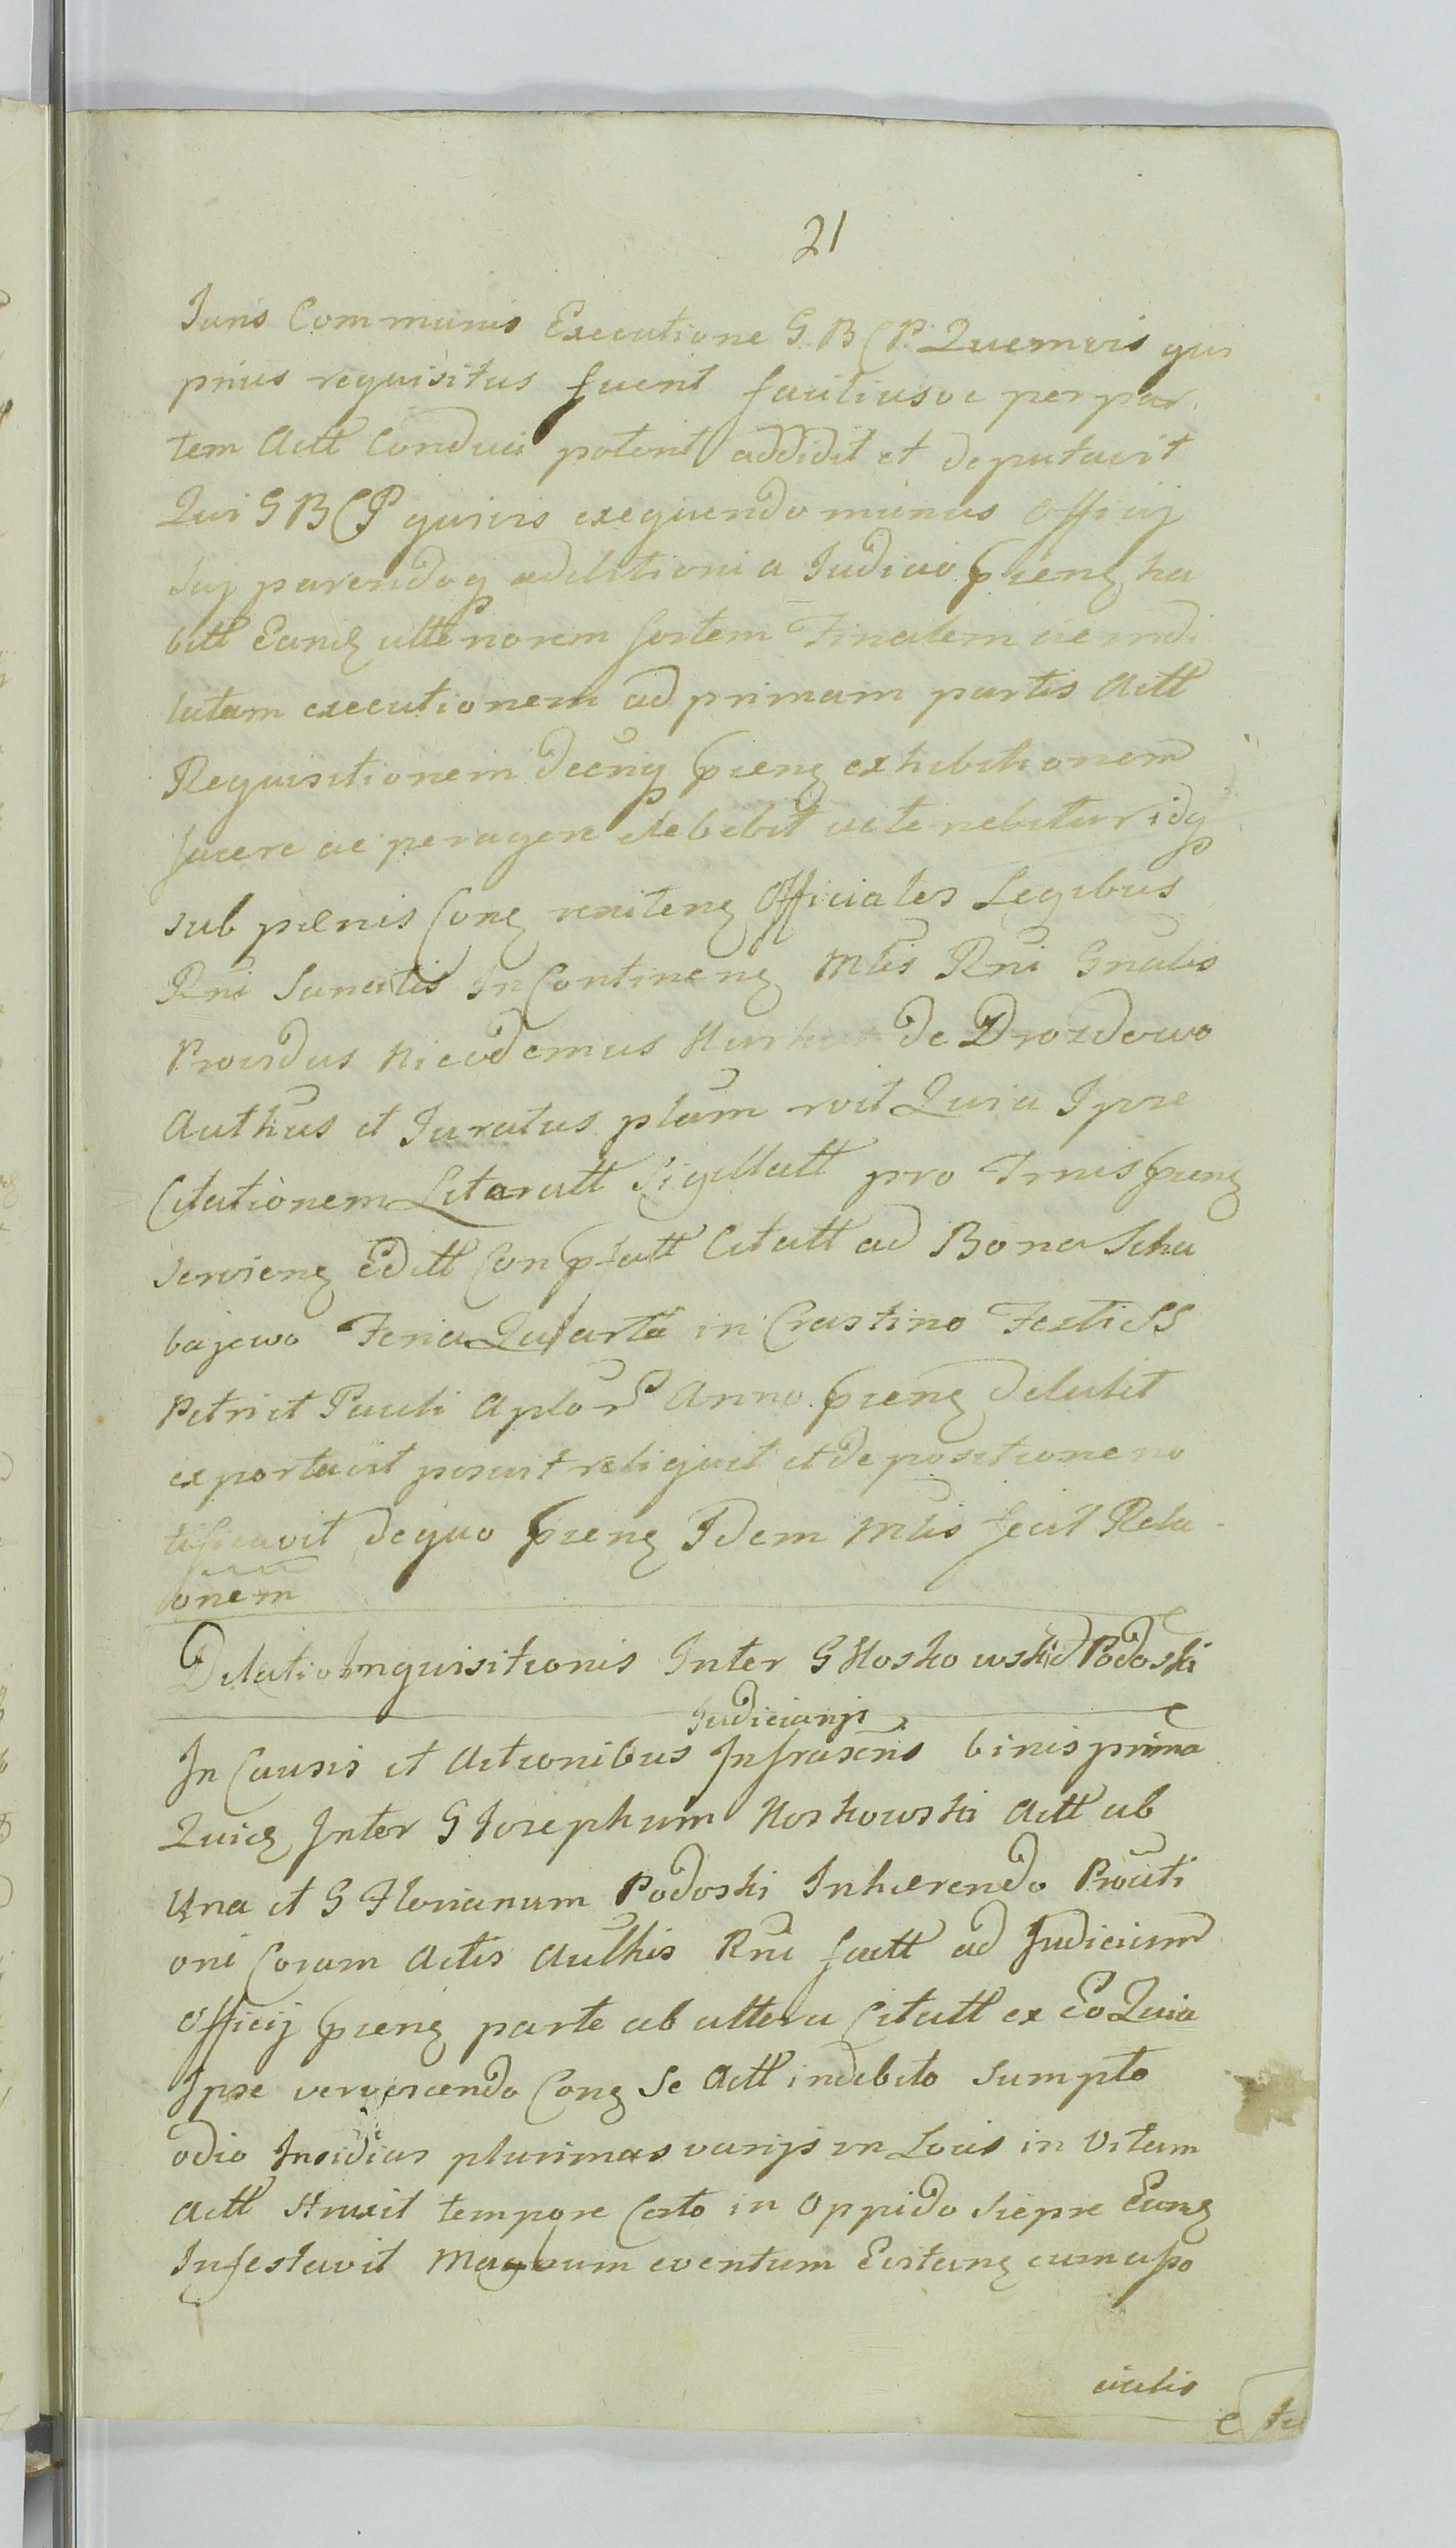 21
Juris Communis Executione G B C P. Quemvis qui
prius requisitus fuerit faciliusve per par
tem Actt Conduci poterit addidit et deputavit
Qui G B C P quivis exequendo munus Officij
sui parendoq additioni a Judicio pñenq ha
bitt Eandq ulteriorem sortem Finalem ac
executionem ad primam partis Actt
Requisitionem pñenq exhibitionem
facere ac peragere debebit ac tenebitur idq
sub pænis Conq renitenq Officiales Legibus
Rñi Sancitis In Continenq Mlis Rñi Gñalis
Providus Nicodemus de Drozdowo
Authus et Juratus plam Quia Ipse
Citationem Literatt Sigillatt pro Trnis pñenq
servienq Editt Con Citatt ad Bona Scha
bajewo Feria Quarta in Crastino Festi SS
Petri et Pauli Aplor Anno pñenq detulit
exportavit posuit reliquit et de positione no
tificavit de quo pñenq Idem Mlis fecit Rela
onem
Dilatio Inquisitionis Inter G Koskowski et Podoski
Judiciarijs
In Causis et Actionibus Infrascris binis prima
Quidq Inter G Josephum Koskowski Actt ab
Una et G Florianum Podoski Inhærendo
oni Coram Actis Authis Rni factt ad Judicium
Officij pñenq parte ab altera Citatt ex Eo Quia
Ipse Conq Se Actt indebito sumpto
odio Insidias plurimas varijs in Locis in Vitam
Actt struxit tempore Certo in Oppido Siepre Eunq
Infestavit eventum Evitanq